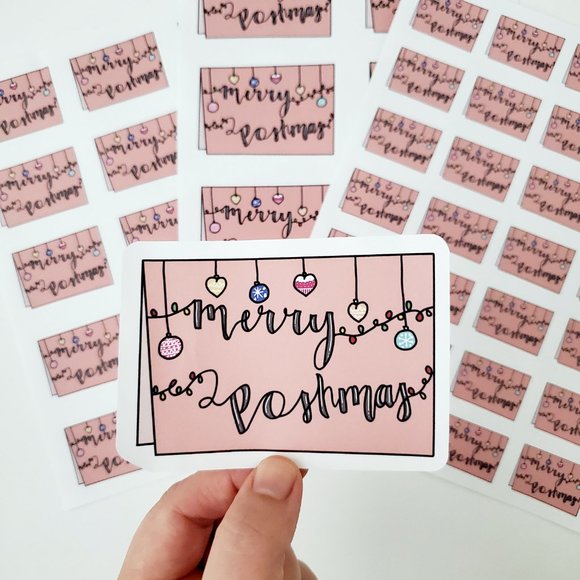 merry
poshmas